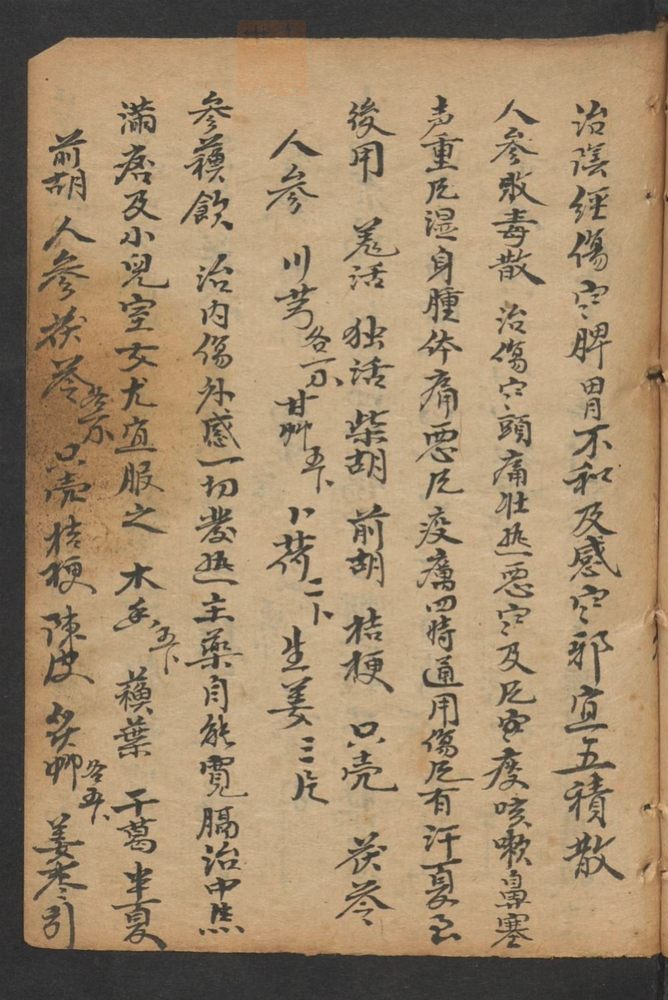 治陰經傷寒脾胃不和及感寒邪宜五積散
人參敗毒散 治傷寒頭痛壯热惡寒及风寒痰咳嗽鼻塞
声重风湿身腫体痛惡风疫癘四時通用傷风有汗夏至
後用 羌活 独活 柴胡 前胡 桔梗 只壳 茯苓
人參 川芎 各 甘艸 五卜 卜荷 二卜 生姜 三片
參蘓飲 治内傷外感一切發热主藥自能寬膈治中焦
滿痞及小兒室女尤宜服之 木香 五卜 蘓葉 干葛 半夏
前胡 人參 茯苓 各 只壳 桔梗 陳皮 炙艸 各五卜 姜枣引